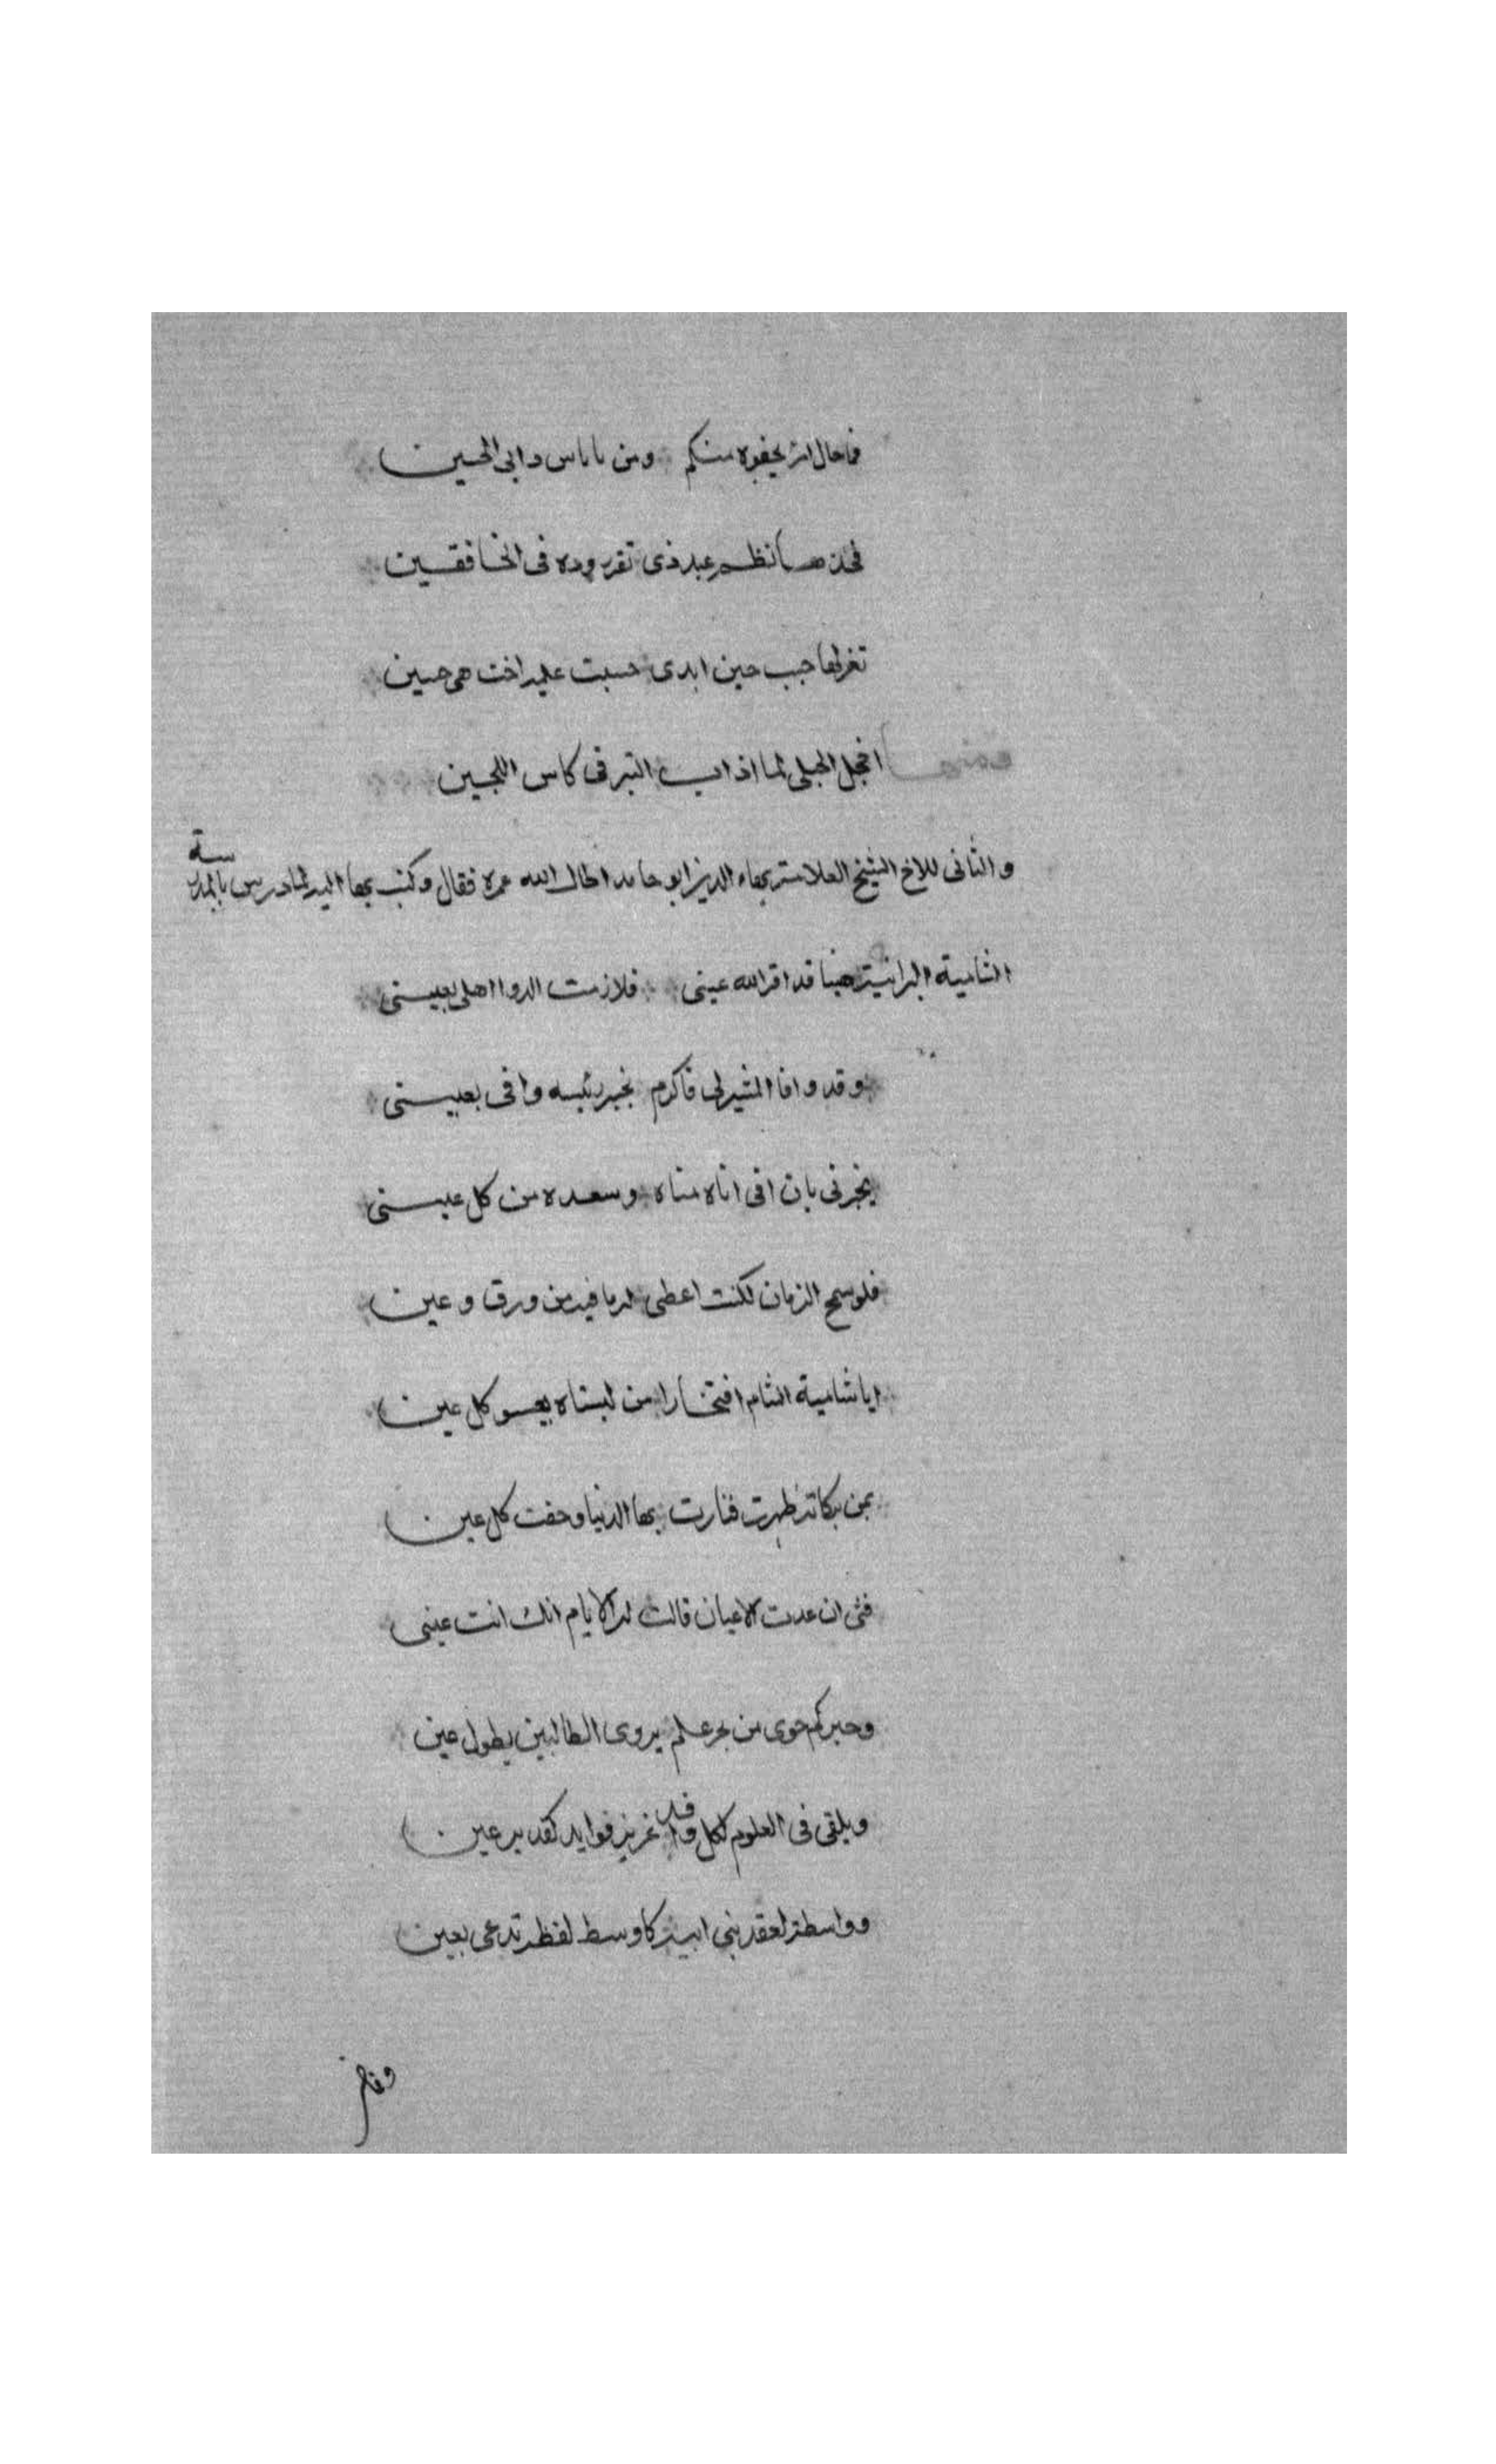 فما حال امر يجفوه منكم ومن ياناس دابى الحسين
فخذها نظم عبد ذى تقروده فى الخافقين
تغر لها جب حين ابدى حسبت عليه اخت هى حسين
اخجل الحبلى لما اذاب التبر فى كاس اللجين
والثانى للاخ الشيخ العلامة بهاء الدين ابو حامد اطال الله عمره فقال وكتب بها اليه لما درس بالمدرسة
الشامية البرانية هنيا قد اقر الله عينى فلا زمت الدوا اهلى بعينى
وقد وافا المشير لى فاكرم بخير نيسه وافى بعينى
يخبرنى بان اخى اتاه مناه وسعده من كل عينى
فلو سمح الزمان لكنت اعطى له ما فيه من ورق وعين
ايا شامية الشام افتخارا من لبسناه يعسو كل عين
بمن بركاته ظهرت فنارت بها الدنيا وحفت كل عين
فتى ان عدت الاعيان قالت له الايام انك انت عينى
وحبركم حوى من بحر علم يروى الطالبين بطول عين
ويلقى فى العلوم لكل وافد غزيز فوايد كقدير عين
وواسطة لعقد بنى ابيه كاوسط لفظه تدعى بعين